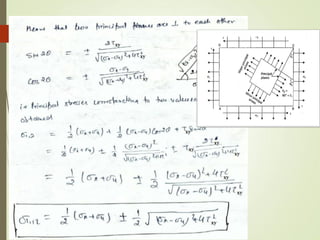 Means that two principal planes are ⊥ to each other
Sin 2θ = ± 2τxy / √(σx-σy)²+4τ²xy
Cos 2θ = ± σx-σy / √(σx-σy)²+4τ²xy
Principal stresses corresponding to two values
obtained
σ1,2 = 1/2 (σx+σy) + 1/2 (σx-σy) Cos 2θ + τxy Sin 2θ
= 1/2 (σx+σy) ± 1/2 (σx-σy)² / √(σx-σy)²+4τ²xy ± τxy 2τxy / √(σx-σy)²+4τ²xy
= 1/2 (σx+σy) ± 1/2 (σx-σy)²+4τ²xy / √(σx-σy)²+4τ²xy
σ1,2 = 1/2 (σx+σy) ± 1/2 √(σx-σy)²+4τ²xy
Principal
planes